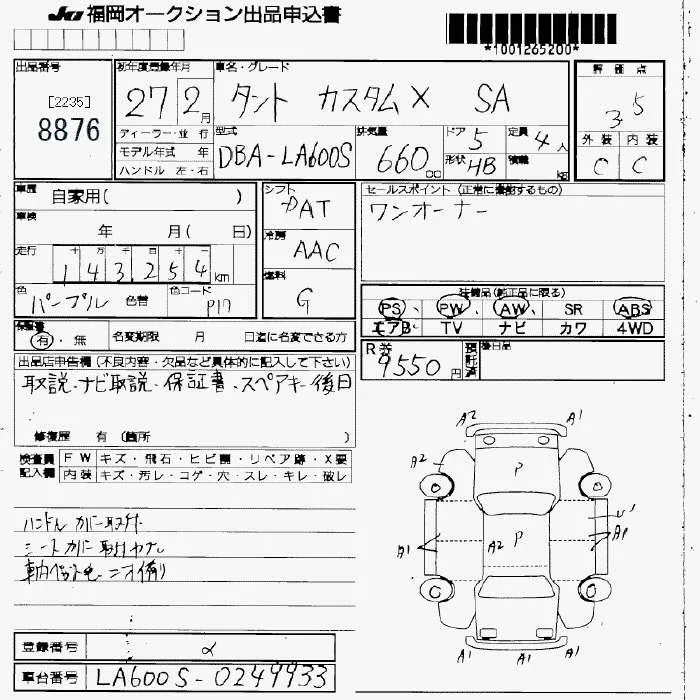 JU 福岡オークション出品申込書
*1001265200*
出品番号
[2235]
8876
初年度登録年月
27 2月
ディーラー・並 行
モデル年式 年
ハンドル 左・右
車名・グレード
タント カスタムX SA
型式
DBA-LA600S
排気量
660 cc
ドア 5
形状 HB
定員 4 人
積載 kg
評価点
3.5
外装 内装
C C
車歴
自家用( )
車検
年 月( 日)
走行
十 万 千 百 十 一
143,254 km
色
パープル 色替
色コード
P19
シフト
DAT
冷房
AAC
燃料
G
セールスポイント (正常に機能するもの)
ワンオーナー
装備品(純正品に限る)
PS、 PW、 AW、 SR ABS
エアB TV ナビ カワ 4WD
保証書
有・無 名変期限 月 日迄に名変できる方
R券
9550円
預託済
後日品
出品店申告欄 (不良内容・欠品など具体的に記入して下さい)
取説、ナビ取説、保証書、スペアキー後日
修復歴 有 (箇所 )
検査員記入欄
FW キズ・飛石・ヒビ割・リペア跡・X要
内装 キズ・汚レ・コゲ・穴・スレ・キレ・破レ
ハンドルカバー取付
シートカバー取付
車内ペット毛 ニオイ有り
A2 A1
A2 P A1
A1 A2 P U1 A1
A1 A1 A1
登録番号
車台番号 LA600S-0249933